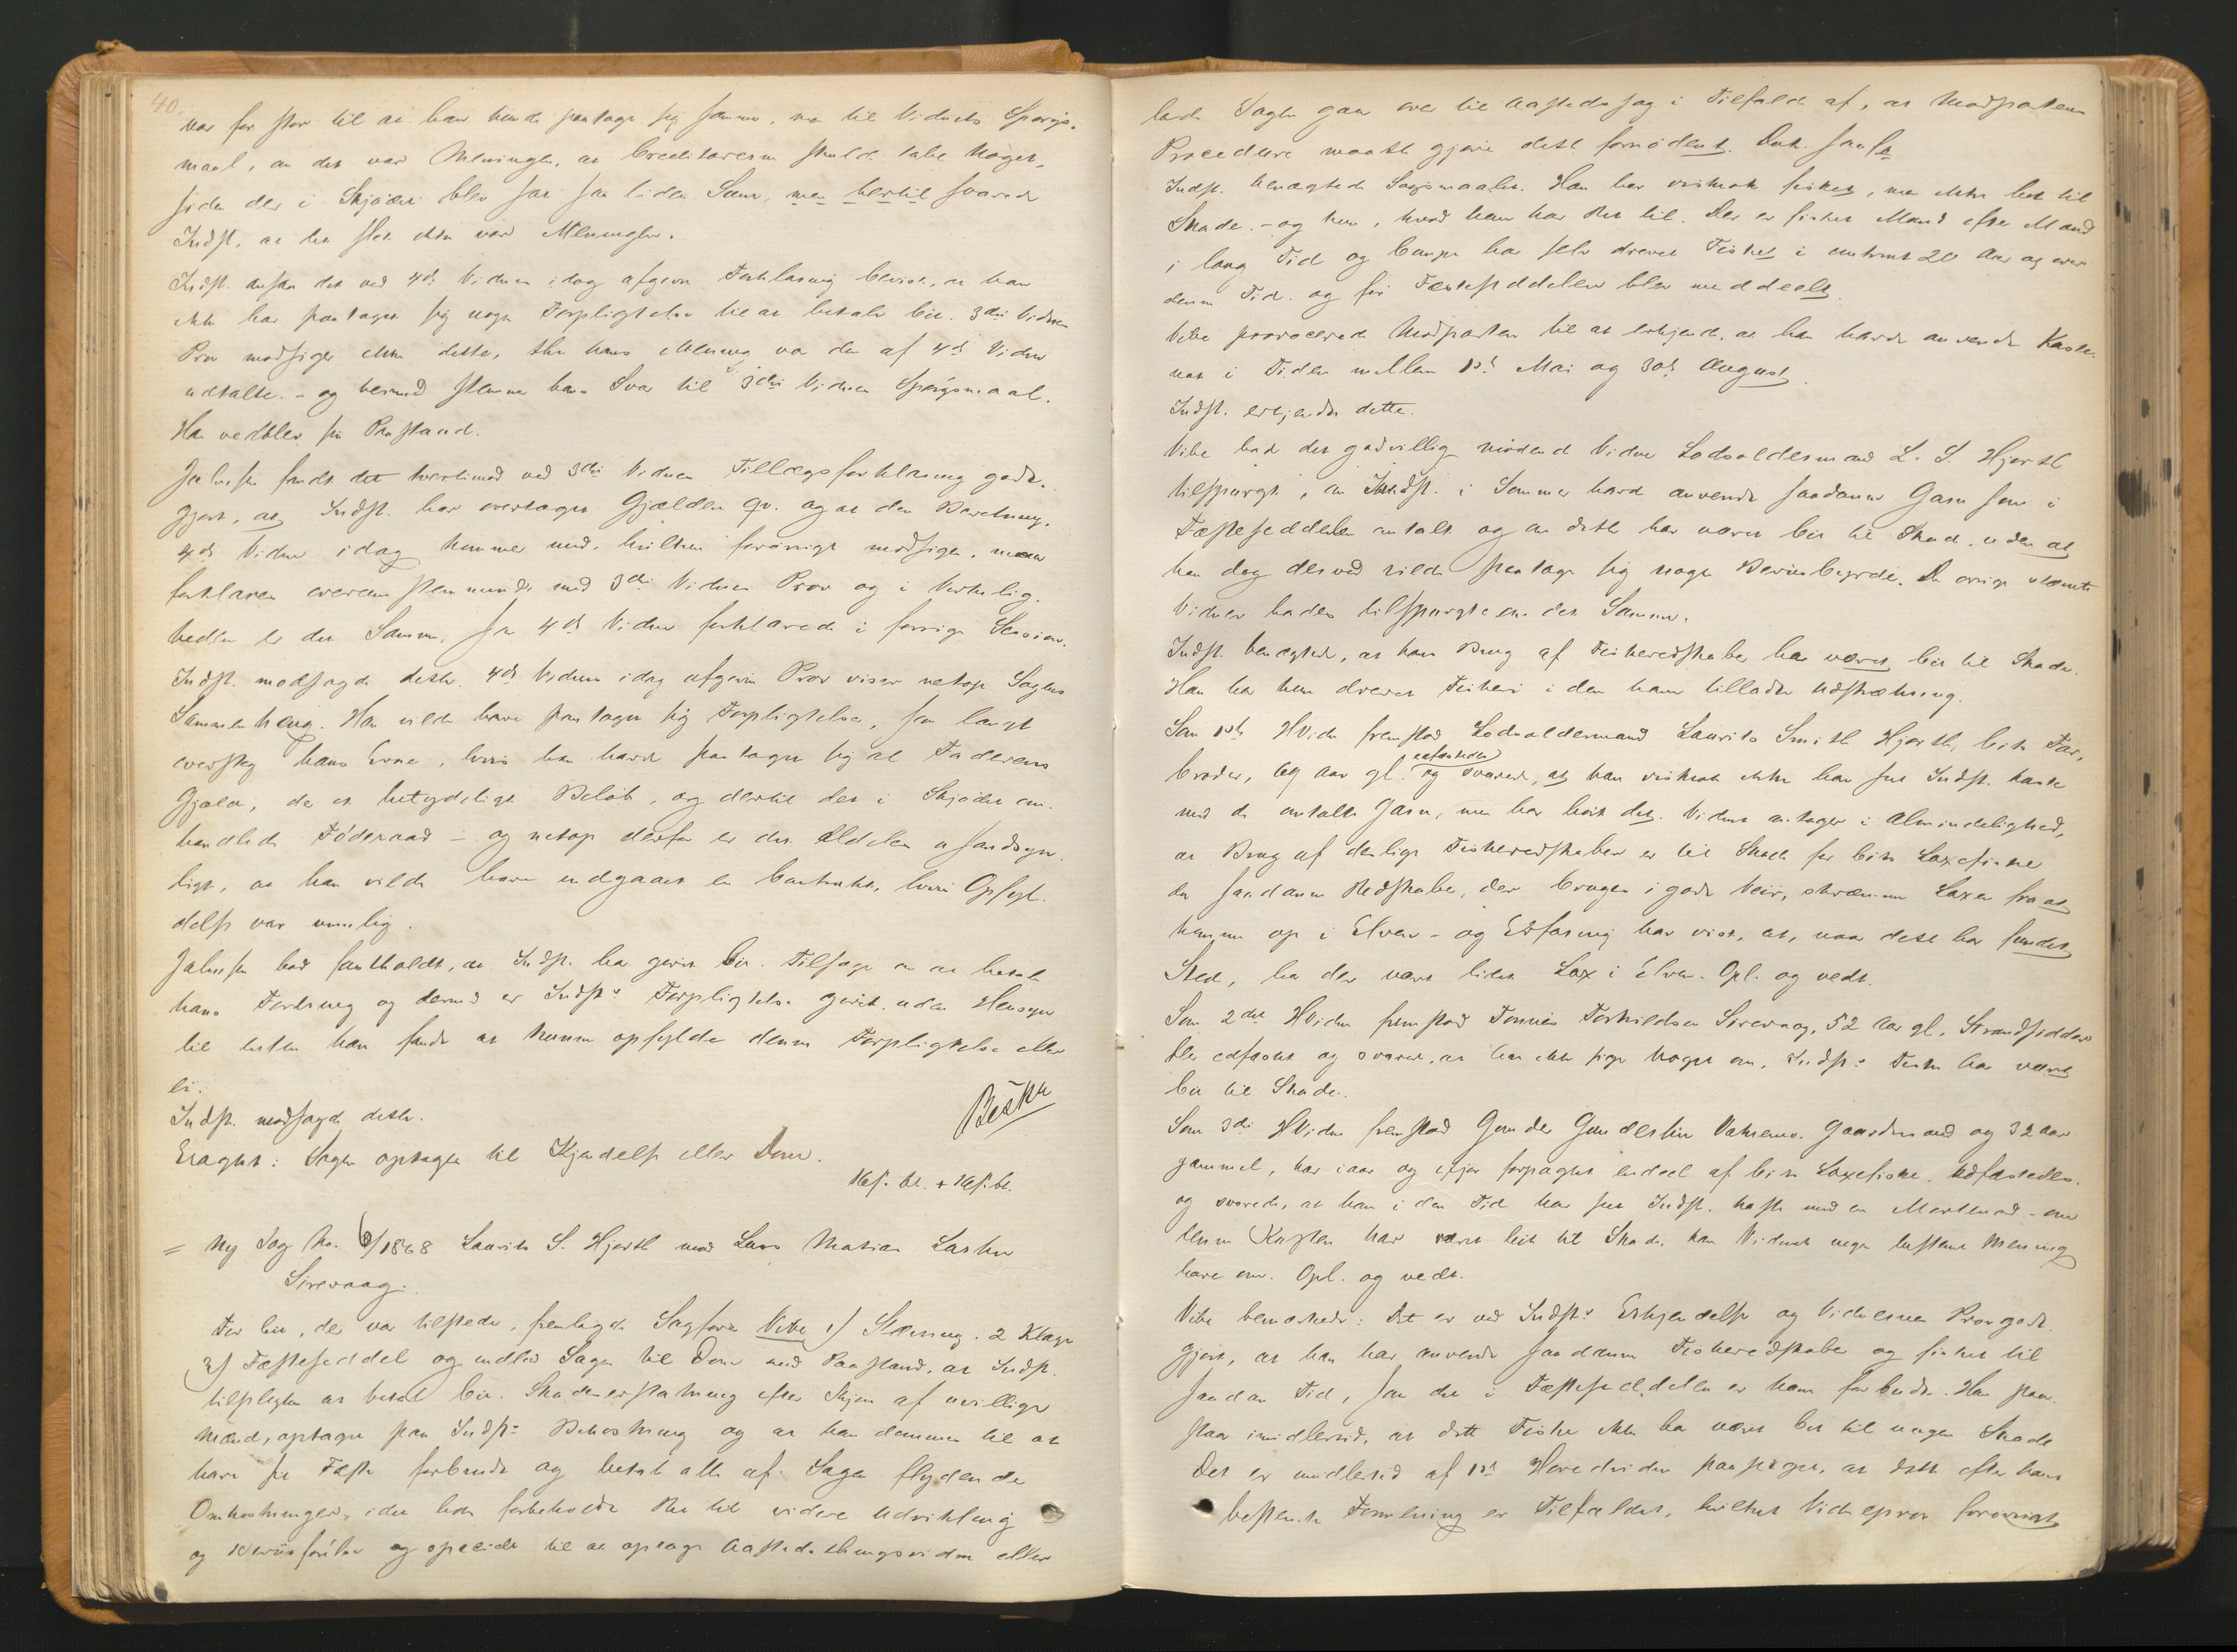 40.
var for stor til at han kunde paatage sig samme, men til Vidnets Spørgs-
maal, om det var Meningen, at Creditorerne skulde tabe Noget,
siden der i Skjødet blev sat saa liden Sum, men hertil svarede
Indst. at det slet ikke var Meningen.
Indst. ansaa det ved 4de Vidnes idag afgivne Forklaring bevist, at han
ikke har paataget sig nogen Forpligtelse til at betale Cit. 3die Vidnes
Prov modsiger ikke dette, thi hans Mening var den af 4de Vidne
udtalte - og hermed stemmer hans Svar til 3die Vidnes Spørgsmaal.
Han vedblev sin Paastand.
fandt det tvertimod ved 3die Vidnes Tillægsforklaring godt-
gjort, at Indst. har overtaget Gjælden qv. og at den Beretning,
4de Vidne idag kommer med, hvilken forøvrigt modsiges, men
forklares overensstemmende med 3die Vidnes Prov og i Virkelig-
heden er det Samme, som 4de Vidne forklarede i forrige Session.
Indst. modsagde dette. 4de Vidnes idag afgivne Prov viser netop Sagens
Sammenhæng. Han vilde have paataget sig Forpligtelser, som langt
oversteg hans Evne, hvis han havde paataget sig al Faderens
Gjæld, der et betydeligt Beløb, og dertil det i Skjødet om-
handlede Føderaad - og netop derfor er det aldeles usandsyn-
ligt, at han vilde have indgaaet en Contrakt, hvis Opfyl-
delse var umulig.
bad fastholdt, at Indst. har givet Cit. Tilsagn om at betale
hans Fordring og dermed er Indsts Forpligtelse givet uden Hensyn
til enten han fandt at kunne opfylde denne Forpligtelse eller
ei.
Indst. modsagde dette.
Eragtet: Sagen optages til Kjendelse eller Dom.
= Ny Sag No. 6/1868 Laurits S. Hjorth mod Lars Mathias Larsen
Sirevaag.
For Cit., der var tilstede, fremlagde Sagfører Vibe 1) Stævning. 2 Klage
3) Fæsteseddel og indlod Sagen til Dom med Paastand, at Indst.
tilpligtes at betale Cit. Skadeserstatning efter Skjøn af uvillige
Mænd, optaget paa Indsts Bekostning og at han dømmes til at
have sit Fæste forbrudt og betale alle af Sagen flydende
Omkostninger, idet han forbeholdt Ret til videre Udvikling
og Beviisførelse og specielt til at optage Aastedsthingsvidne eller
lade Sagen gaa over til Aastedssag i Tilfælde af, at Modpartens
Procedure maatte gjøre dette fornødent. Dok.
Indst. benægtede Søgsmaalet. Han har vistnok fisket, men ikke Cit. til
Skade - og kun, hvad han har Ret til. Der er fisket Mand efter Mand
i lang Tid og Comp. har selv drevet Fisket i omtrent 20 Aar og over
denne Tid og før Fæsteseddelen blev meddeelt.
Vibe provocerede Modparten til at erkjende, at han havde anvendt Kaste-
not i Tiden mellem 1ste Mai og 30te August.
Indst. erkjendte dette.
Vibe bad det godvillig mødende Vidne Lodsoldermand L. S. Hjorth
tilspurgt, om Indst. i Sommer havde anvendt saadanne Garn som i
Fæsteseddelen omtalt og om dette har været Cit. til Skade, uden at
han dog derved vilde paatage sig nogen Beviisbyrde. De øvrige stævnte
Vidner bades tilspurgte om det Samme.
Indst. benægtede, at hans Brug af Fiskeredskaber har været Cit. til Skade.
Han har kun drevet Fiskeri i den ham tilladte Udstrækning.
Som 1ste HVidne fremstod Lodsoldermand Laurits Smith Hjorth, Cits Far-
broder, 69 Aar gl. edfæstedes og svarede, at han vistnok ikke har seet Indst. kaste
med de omtalte Garn, men har hørt det. Vidnet antager i Almindelighed,
at Brug af deslige Fiskeredskaber er til Skade for Cits Laxefiske
da saadanne Redskaber, der bruges i godt Veir, skræmme Laxen fra at
komme op i Elven - og Erfaring har vist, at, naar dette har fundet
Sted, har der været lidet Lax i Elven. Opl. og vedt.
Som 2det HVidne fremstod Tønnes Torkildsen Sirevaag, 52 Aar gl., Strandsidder
blev edfæstet og svarede, at han ikke siger Noget om, Indsts Fiske har været
Cit. til Skade.
Som 3die HVidne fremstod Gunder Gundersen Vatnemo, Gaardmand og 32 Aar
gammel, har iaar og ifjor forpagtet endeel af Cits Laxefiske. Edfæstedes
og svarede, at han i den Tid har seet Indst. kaste med en Makrelnod - om
denne Kasten har været Cit. til Skade, kan Vidnet ingen bestemt Mening
have om. Opl. og vedt.
Vibe bemærkede: Det er ved Indsts Erkjendelse og Vidnernes Prov godt-
gjort, at han har anvendt saadanne Fiskeredskaber og fisket til
saadan Tid, som det i Fæsteseddelen er ham forbudt. Han paa-
staar imidlertid, at dette Fiske ikke har været Cit. til nogen Skade
Det er imidlertid af 1ste Hovedvidne paapeget, at dette efter hans
bestemte Formening er Tilfældet, hvilket Vidneprov forøvrigt